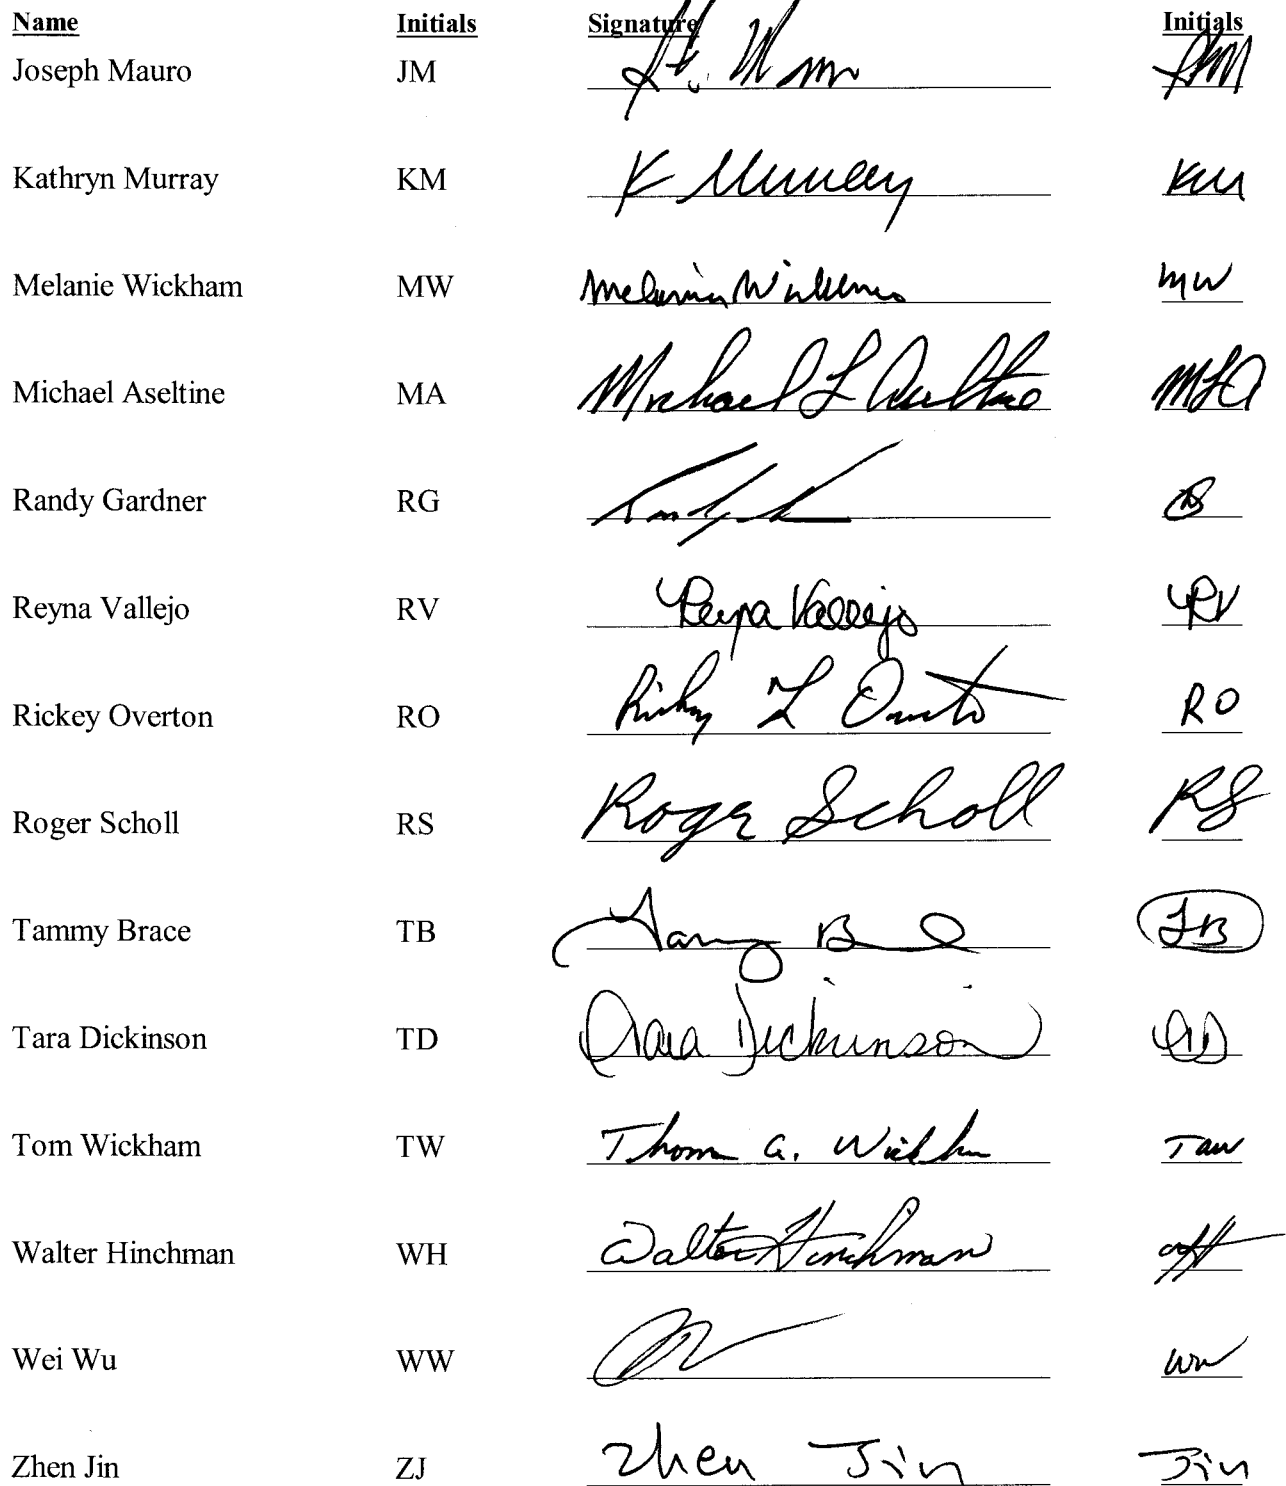 Name Initials Signature Initials
Joseph Mauro JM
Kathryn Murray KM K Murray KM
Melanie Wickham MW Melanie Wickham MW
Michael Aseltine MA Michael L Aseltine MLA
Randy Gardner RG
Reyna Vallejo RV Reyna Vallejo RV
Rickey Overton RO Rickey L Overton RO
Roger Scholl RS Roger Scholl RS
Tammy Brace TB Tammy B TB
Tara Dickinson TD Tara Dickinson TD
Tom Wickham TW Thomas A. Wickham TAW
Walter Hinchman WH Walter Hinchman WH
Wei Wu WW WW
Zhen Jin ZJ Zhen Jin Jin